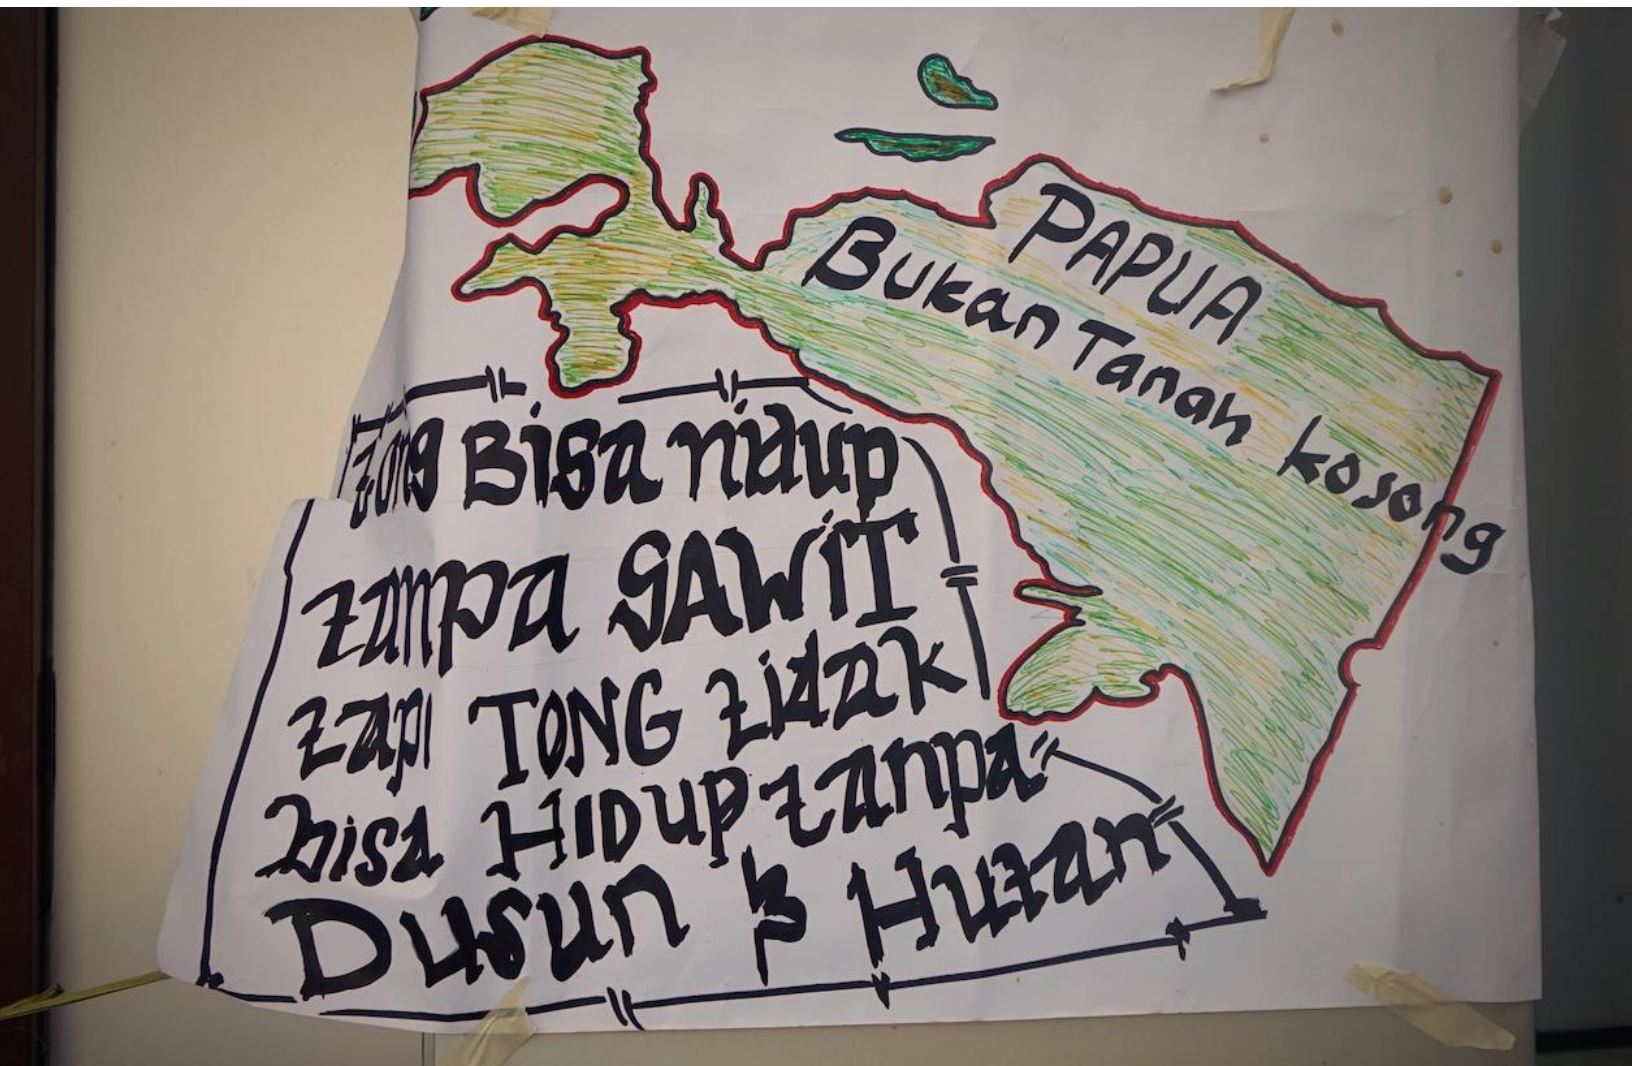 PAPUA
Bukan Tanah kosong
Tong Bisa Hidup
tanpa SAWiT
tapi TONG tidak
bisa HIDup tanpa
Dusun & Hutan